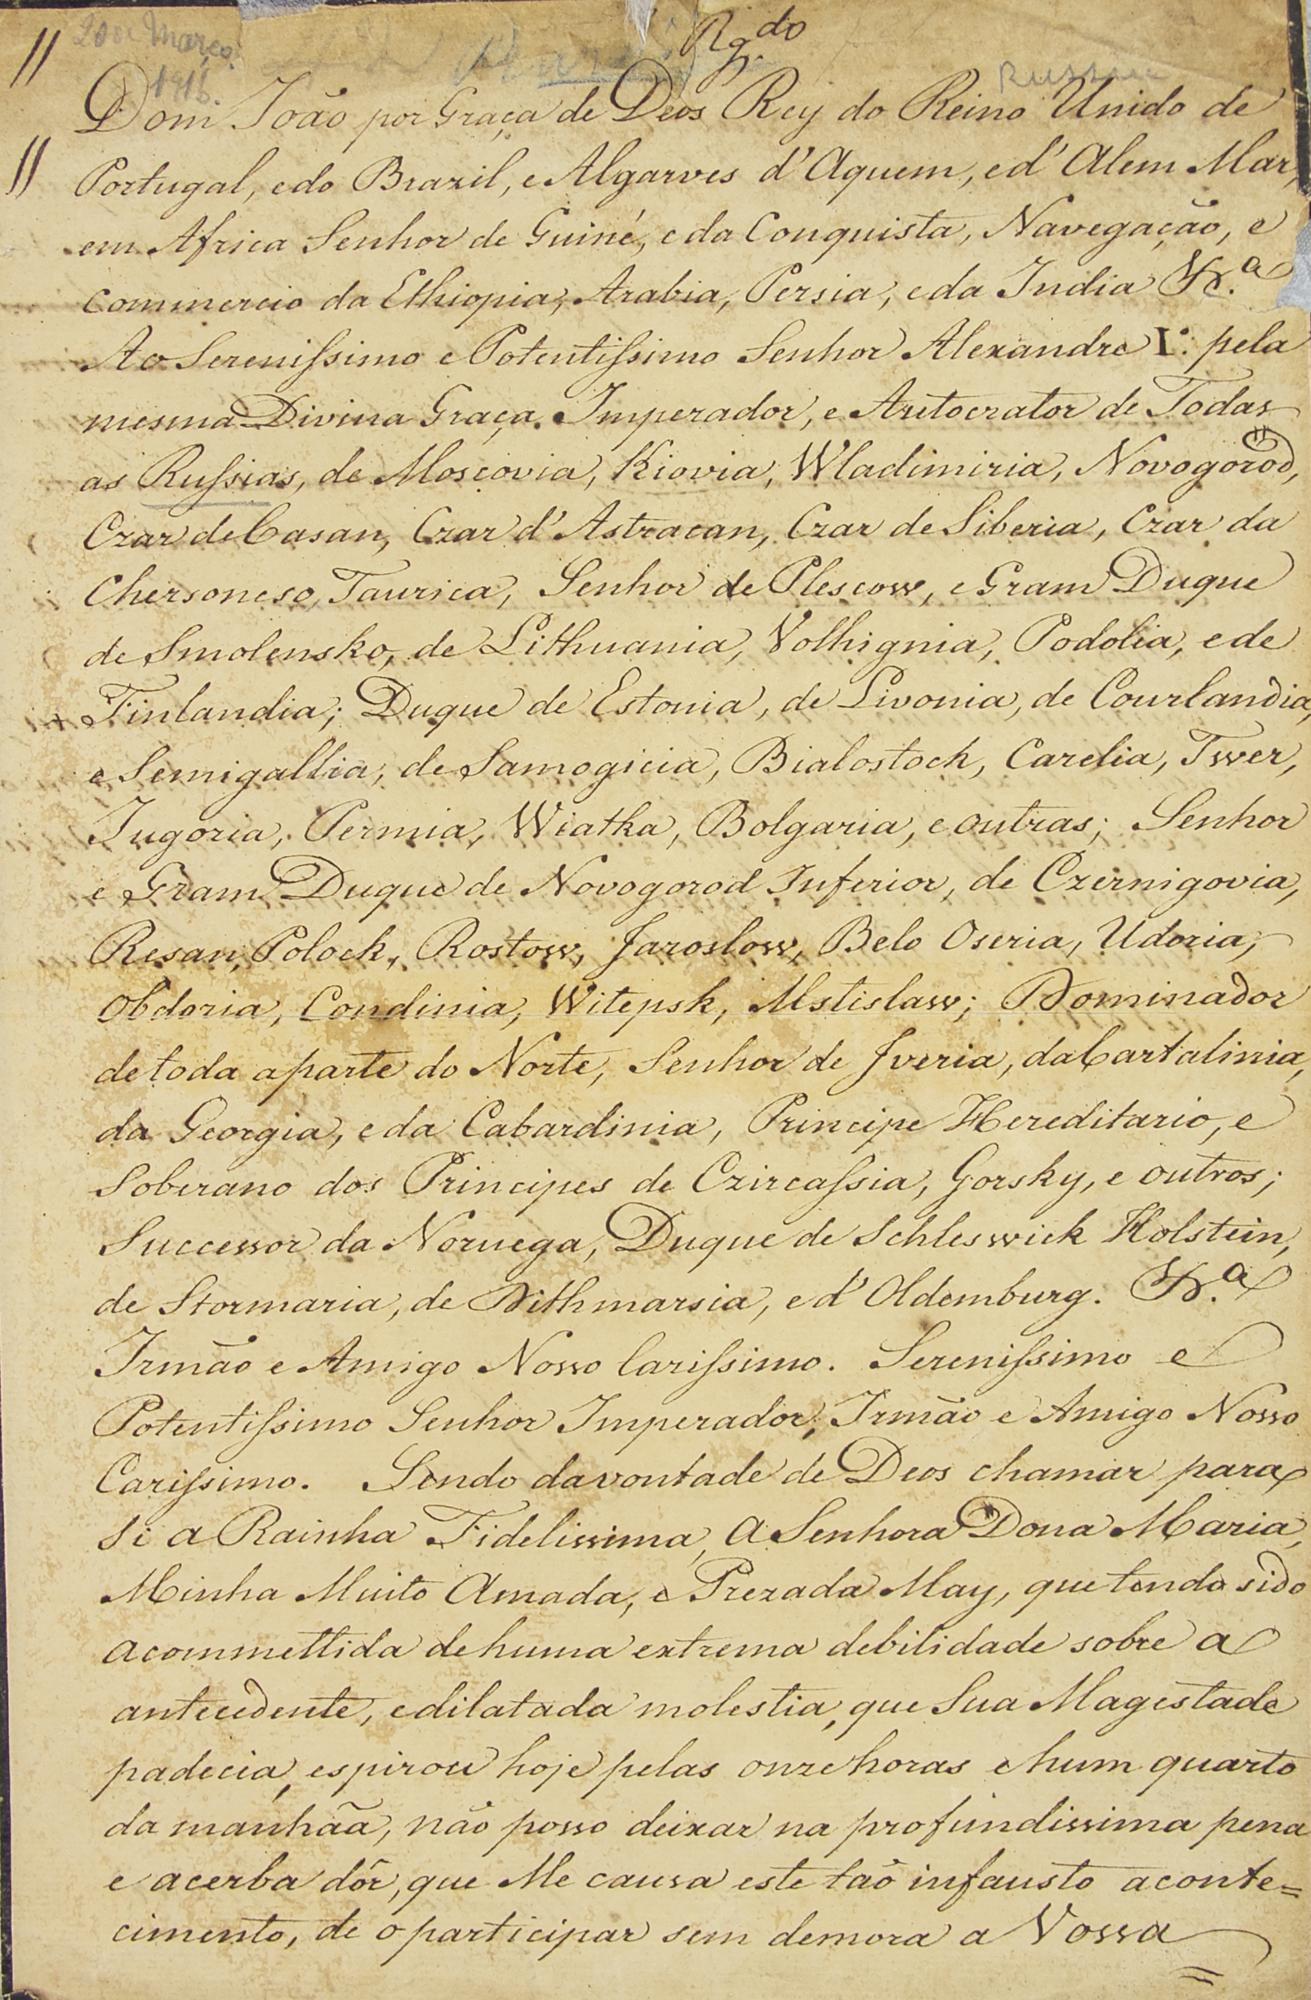 20 de Março
Rg.do
Russia
Dom João por Graça de Deos Rey do Reino Unido de
Portugal, e do Brazil, e Algarves d'Aquem, e d'Alem Mar,
em Africa Senhor de Guiné, e da Conquista, Navegação, e
Commercio da Ethiopia, Arabia, Persia, e da India &.a
Ao Serenissimo e Potentissimo Senhor Alexandre I.o pela
mesma Divina Graça Imperador, e Autocrator de Todas
as Russias, de Moscovia, Kiovia, Wladimiria, Novogorod,
Czar de Casan, Czar d'Astracan, Czar de Siberia, Czar da
Chersoneso Taurica, Senhor de Plescow, e Gram Duque
de Smolensko, de Lithuania, Volhignia, Podolia, e de
Finlandia; Duque de Estonia, de Livonia, de Courlandia,
e Semigallia, de Samogicia, Bialostock, Carelia, Twer,
Jugoria, Permia, Wiatka, Bolgaria, e outras; Senhor
e Gram Duque de Novogorod Inferior, de Czernigovia,
Resan, Polock, Rostow, Jaroslow, Belo Oseria, Udoria,
Obdoria, Condinia, Witepsk, Mstislaw; Dominador
de toda a parte do Norte, Senhor de Iveria, da Cartalinia,
da Georgia, e da Cabardinia, Principe Hereditario, e
Soberano dos Principes de Czircassia, Gorsky, e outros;
Successor da Noruega, Duque de Schleswick Holstein,
de Stormaria, de Dithmarsia, e d'Oldemburg. &.a
Irmão e Amigo Nosso Carissimo. Serenissimo e
Potentissimo Senhor Imperador, Irmão e Amigo Nosso
Carissimo. Sendo da vontade de Deos chamar para
Si a Rainha Fidelissima, a Senhora Dona Maria,
Minha Muito Amada, e Prezada May, que tendo sido
acommettida de huma extrema debilidade sobre a
antecedente, e dilatada molestia, que Sua Magestade
padecia, espirou hoje pelas onze horas e hum quarto
da manhãa, não posso deixar na profundissima pena
e acerba dôr, que Me causa este tão infausto aconte=
cimento, de o participar sem demora a Vossa